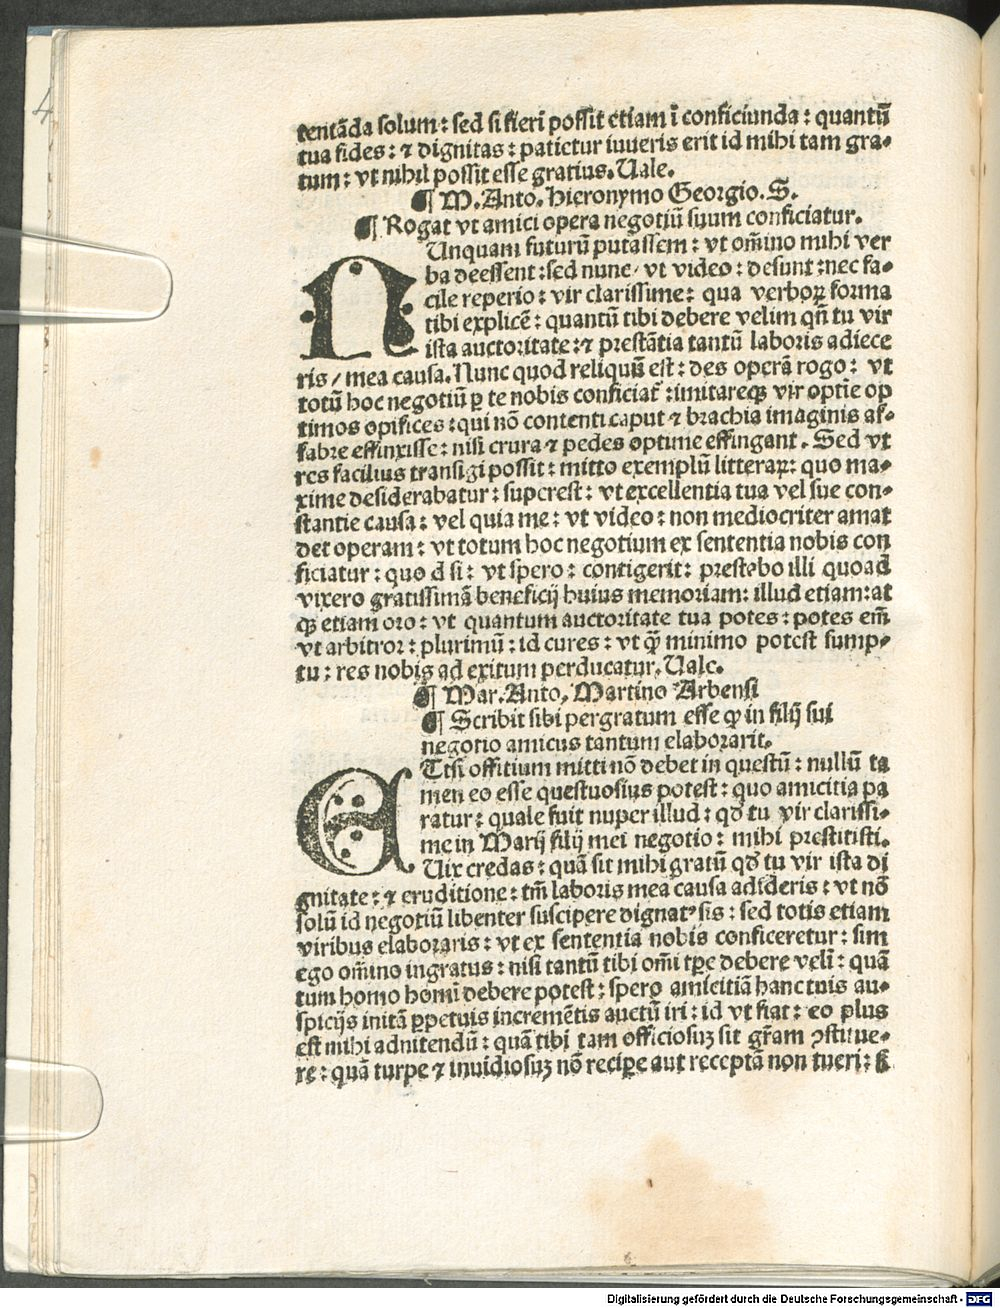 4
tentãda solum: sed si fieri possit etiam ĩ conficiunda: quantũ
tua fides: ⁊ dignitas: patietur iuueris erit id mihi tam gra-
tum: vt nihil possit esse gratius. Uale.
¶ M. Anto. hieronymo Georgio. S.
¶ Rogat vt amici opera negotiũ suum conficiatur.
NUnquam futurũ putassem: vt om̃ino mihi ver
ba deessent: sed nunc/ vt video: desunt: nec fa-
cile reperio: vir clarissime: qua verboꝝ forma
tibi explicẽ: quantũ tibi debere velim qñ tu vir
ista auctoritate: ⁊ prestãtia tantũ laboris adiece
ris/ mea causa. Nunc quod reliquũ est: des operã rogo: vt
totũ hoc negotiũ ꝑ te nobis conficiat᷑: imitareqꝫ vir optĩe op
timos opifices: qui nõ contenti caput ⁊ brachia imaginis af-
fabre effinxisse: nisi crura ⁊ pedes optime effingant. Sed vt
res facilius transigi possit: mitto exemplũ litteraꝝ: quo ma-
xime desiderabatur: superest: vt excellentia tua vel sue con-
stantie causa: vel quia me: vt video: non mediocriter amat
det operam: vt totum hoc negotium ex sententia nobis con
ficiatur: quo d si: vt spero: contigerit: prestabo illi quoad
vixero gratissimã beneficij huius memoriam: illud etiam: at
qꝫ etiam oro: vt quantum auctoritate tua potes: potes em̃
vt arbitror: plurimũ: id cures: vt qͣ̃ minimo potest sump-
tu: res nobis ad exitum perducatur. Uale.
¶ Mar. Anto, Martino Arbensi
¶ Scribit sibi pergratum esse ꝙ in filij sui
negotio amicus tantum elaborarit.
ETtsi offitium mitti nõ debet in questũ: nullũ ta
men eo esse questuosius potest: quo amicitia pa
ratur: quale fuit nuper illud: qđ tu vir clarissi-
me in Marij filij mei negotio: mihi prestitisti.
Uix credas: quã sit mihi gratũ qđ tu vir ista di
gnitate: ⁊ eruditione: tm̃ laboris mea causa adideris: vt nõ
solũ id negotiũ libenter suscipere dignatꝰ sis: sed totis etiam
viribus elaboraris: vt ex sententia nobis conficeretur: sim
ego om̃ino ingratus: nisi tantũ tibi om̃i tꝑe debere velĩ: quã
tum homo homĩ debere potest: spero amicitiã hanc tuis au-
spicijs initã ꝑpetuis incremẽtis auctũ iri: id vt fiat: eo plus
est mihi adnitendũ: quã tibi tam officiosuꝫ sit gr̃am ꝯstitue-
re: quã turpe ⁊ inuidiosuꝫ nõ reciꝑe aut receptã non tueri: s̃
Digitalisierung gefördert durch die Deutsche Forschungsgemeinschaft - DFG